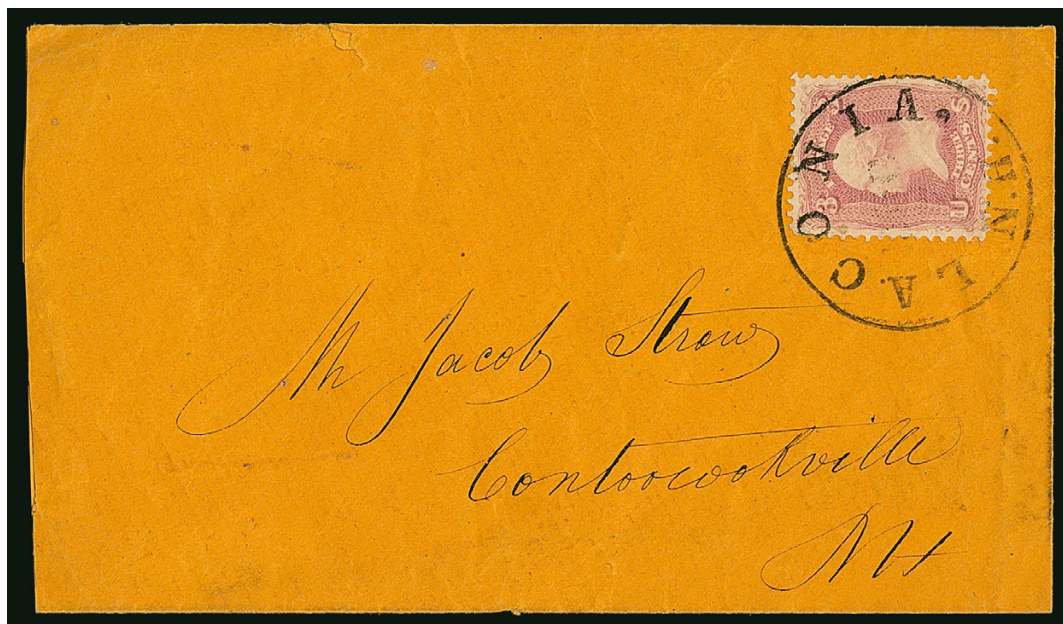 LACONIA, N.H.
3
U
Mr Jacob Straw
Contoocookville
NH